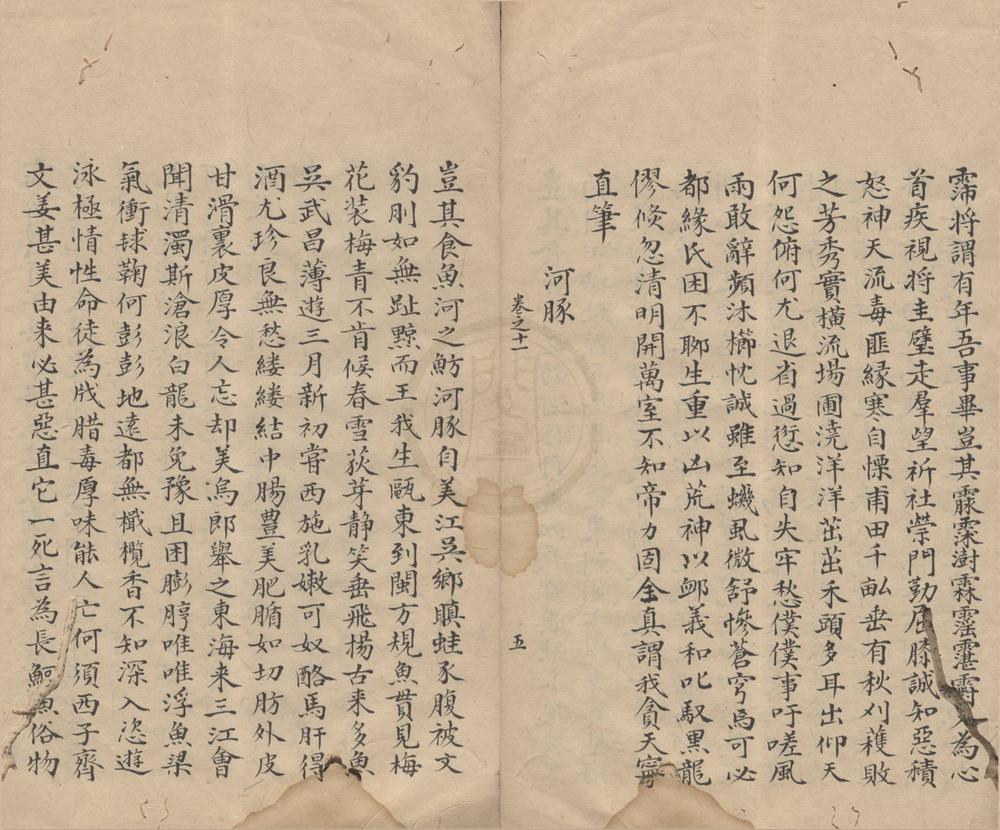 霈將謂有年吾事畢豈其霢霂澍霖霪霮霨反為心
首疾視將圭璧走羣望祈社禜門勤屈膝誠知惡積
怒神天流毒匪緣寒自慄甫田千畝垂有秋刈穫敗
之芳秀實橫流場圃澆洋洋茁茁禾頭多耳出仰天
何怨俯何尤退省過愆知自失牢愁僕僕事吁嗟風
雨敢辭頻沐櫛忱誠雖至蠛風微舒慘蒼穹烏可必
都緣氏困不聊生重以凶荒神以卹義和叱馭黑龍
僇倏忽清明開萬室不知帝力固全真謂我貪天寧
直筆
河豚
卷之十一
五
豈其食魚河之魴河豚自美江吳鄉瞋蛙豕腹被文
豹刖如無趾黥而王我生甌東到閩方規魚貫見梅
花裝梅青不肯候春雪荻芽靜笑垂飛揚古来多魚
吳武昌薄遊三月新初嘗西施乳嫩可奴酪馬肝得
酒尤珍良無愁縷縷結中腸豊美肥腯如切肪外皮
甘滑裏皮厚令人忘却美烏郎舉之東海来三江會
聞清濁斯滄浪白龍未免豫且困膨脝唯唯浮魚梁
氣衝毬鞠何彭彭地遠都無檻欖香不知深入恣遊
泳極情性命徒為戕腊毒厚味能人亡何須西子齊
文姜甚美由来必甚惡直它一死言為長鯛魚俗物